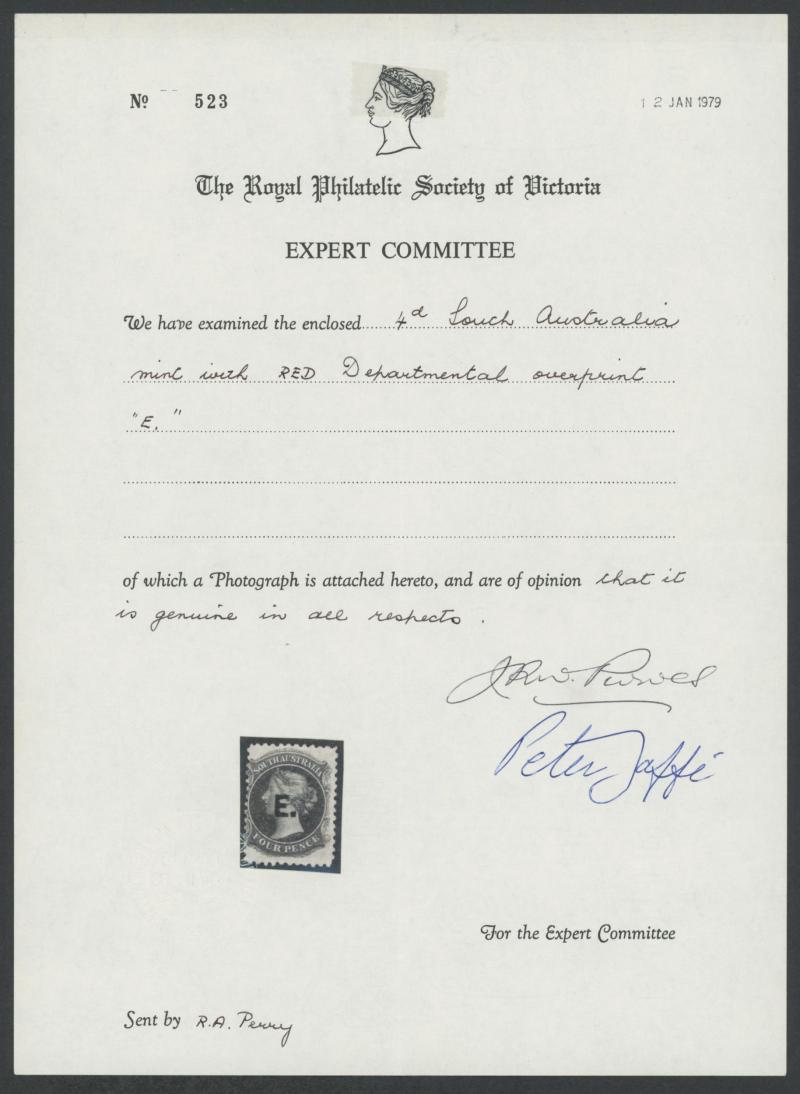 Nº 523
12 JAN 1979
The Royal Philatelic Society of Victoria
EXPERT COMMITTEE
We have examined the enclosed 4d South Australia
mint with RED Departmental overprint
"E."
of which a Photograph is attached hereto, and are of opinion that it
is genuine in all respects.
J.R.W. Purves
Peter Jaffé
SOUTH AUSTRALIA
E.
FOUR PENCE
For the Expert Committee
Sent by R.A. Perry